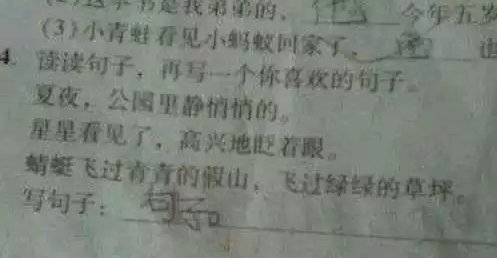 (2)这本书是我弟弟的，他 今年五岁
(3)小青蛙看见小蚂蚁回家了，
4. 读读句子，再写一个你喜欢的句子。
夏夜，公园里静悄悄的。
星星看见了，高兴地眨着眼。
蜻蜓飞过青青的假山，飞过绿绿的草坪。
写句子：句子。